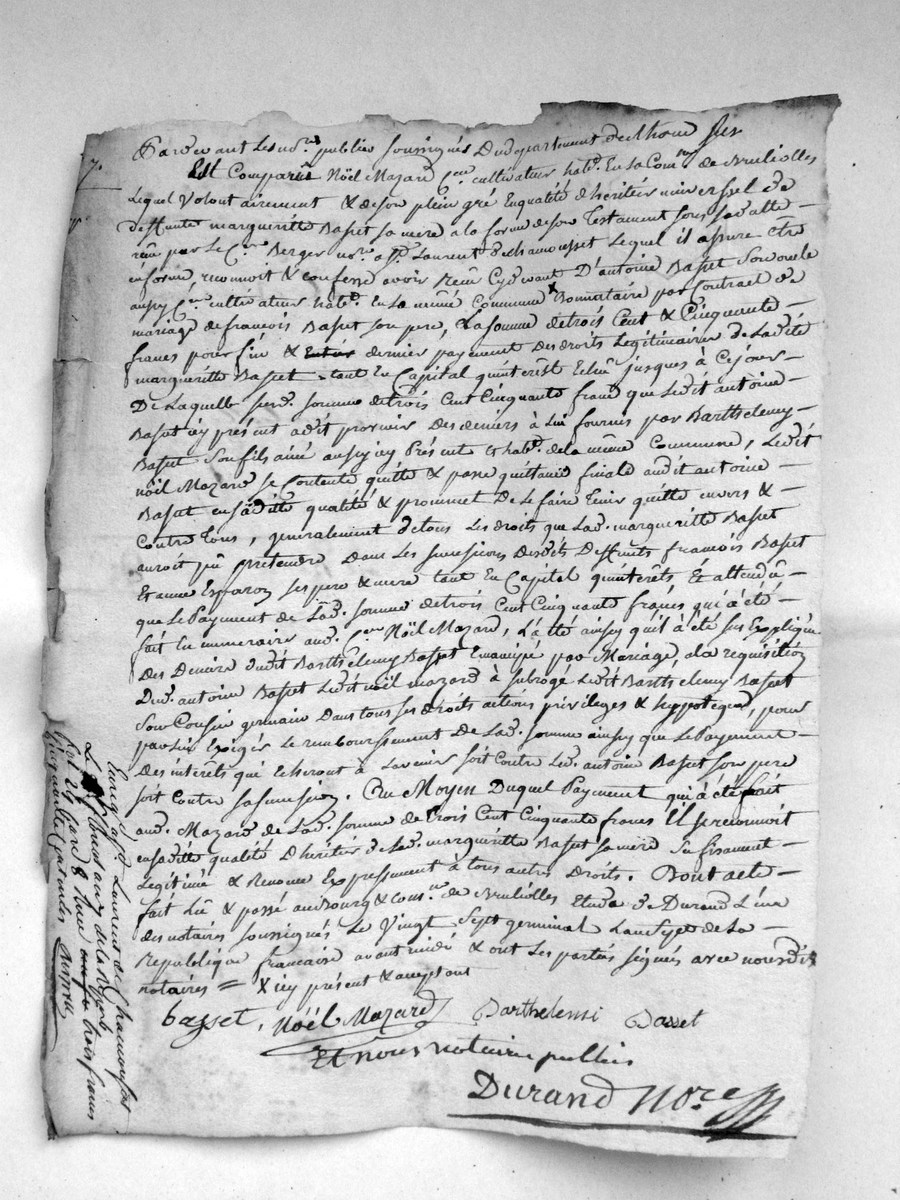 Pardevant Les no.res publics soussignés Du departement de Rhone sus
Est Comparû Noël Mazard C.en cultivateur hab.t En La Com.ne de Brulliolles
Lequel Volontairement & de son plein gré En qualité d'heritier universsel de
deffunte margueritte Basset sa mere a la forme de son Testament sous sa datte
reçu par Le C.en Berger no.re a S.t Laurent de chamousset Lequel il assure être
en forme, reconnoit & confesse avoir Reçu Cy devant D'antoine Basset son oncle
aussy C.en cultivateur hab.t En La même Commune x Donnataire par Contract de
mariage de françois Basset son pere, La somme de trois Cent & Cinquante –
francs pour fin & dernier payement Des droits Legitimaires de Ladite
margueritte Basset – tant En Capital qu'interest Echû jusques à Ce jour –
De Laquelle susd. somme de trois Cent Cinquante francs que Ledit antoine –
Basset icy présent a dit provenir Des deniers à Lui fournis par Barthelemy –
Basset Son fils ainé aussy icy Présent & hab.t de la même Commune, Ledit
nöel Mazard se Contente quitte & passe quittance finale audit antoine –
Basset en sadite qualité & promet De Le faire tenir quitte envers &
Contre tous, generalement de tous Les droits que Lad. marguerite Basset
auroit pû pretendre Dans Les successions Desdits Deffunts françois Basset
Et anne Esparon ses pere & mere tant En Capital qu'interêts, Et attendû –
que Le Payement de Lad. somme de trois Cent Cinquante francs qui a été
fait En numeraire aud. C.en Nöel Mazard, L'a été ainsy qu'il a été sus Expliqué
Des Deniers dudit Barthélemy Basset Emancipé par Mariage, a La requisition
Dud. antoine Basset Ledit nöel mazard à subrogé Ledit Barthelemy Basset
Son Cousin germain Dans tous ses droits actions privileges & hyppoteques, pour
par Lui Exiger Le rembourssement de Lad. somme ainsy que Le Payement –
Des interêts qui Echeront à L'avenir soit Contre Led. antoine Basset Son pere
soit Contre sa succession. Au Moyen Duquel Payement qui a été fait
aud. Mazard de Lad. somme de trois Cent Cinquante francs Il se reconnoit
en sadite qualité D'heritier de Lad. marguéritte Basset sa mère Suffisament –
Legitimé & Renonce Expressement à tous autres Droits. Dont acte –
fait Lû & passé au Bourg & Com.ne de Brulliolles Etude de Durand L'un
des notaires soussignés Le Vingt Sept germinal L'an Sept de La –
Republique francaise avant midi & ont Les parties signés avec nous dits
notaires = x icy présent & acceptant
basset, Noël Mazard Barthelemi Basset
Et nous notaires publics
Durand No.re
Enreg. a S.t Laurent de Chamousset
Le floreal an 7 de la Repub.
francs
Cinquante Centimes